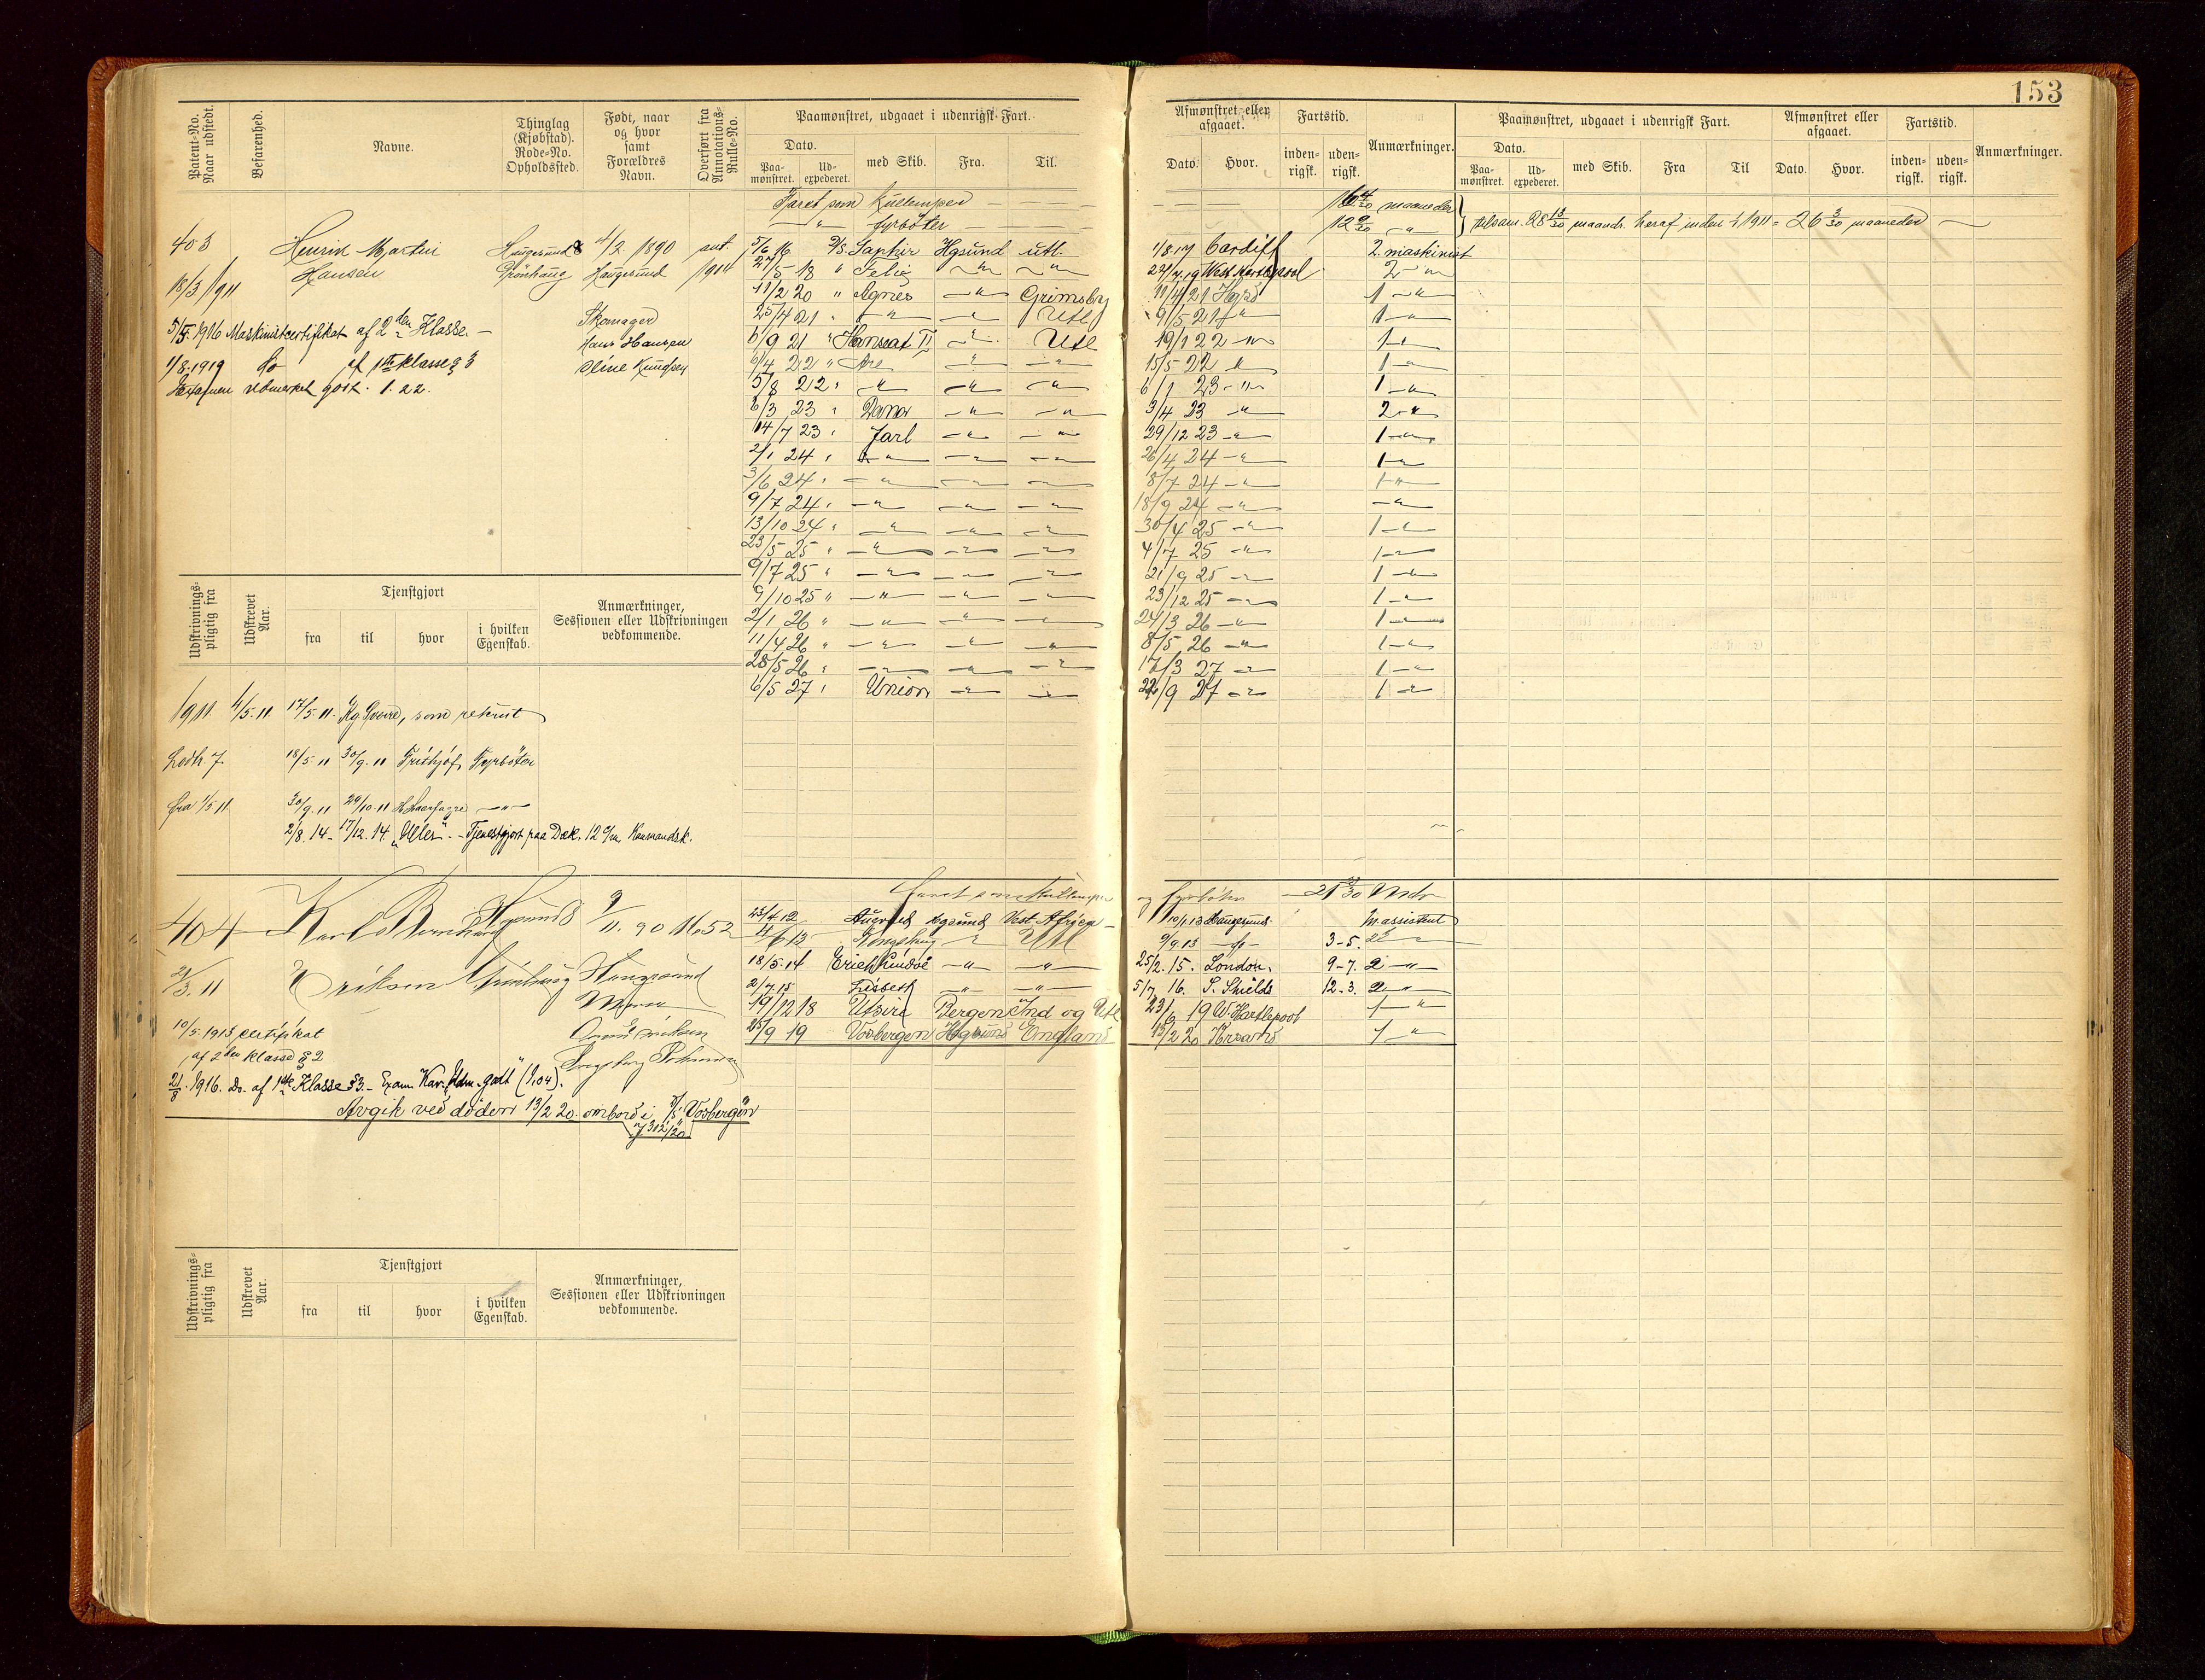 153
Patent-No. Naar udstedt.
Befarenhed.
Navne.
Thinglag (Kjøbstad). Rode-No. Opholdssted.
Født, naar og hvor samt Forældres Navn.
Overført fra Annotations-Rulle-No.
Paamønstret, udgaaet i udenrigsk Fart.
Dato.
Paa-mønstret.
Ud-expederet.
med Skib.
Fra.
Til.
Afmønstret eller afgaaet.
Dato.
Hvor.
Fartstid.
inden-rigsk.
uden-rigsk.
Anmærkninger.
Paamønstret, udgaaet i udenrigsk Fart.
Dato.
Paa-mønstret.
Ud-expederet.
med Skib.
Fra
Til
Afmønstret eller afgaaet.
Dato.
Hvor.
Fartstid.
inden-rigsk.
uden-rigsk.
Anmærkninger.
Faret som Kullemper — — — 16 4/30 maaneder
—"— fyrbøter — — — 12 9/30 —"—
tilsam. 28 13/30 maand. heraf inden 1/1 1911 = 26 3/30 maaneder
403 Henrik Martin Hansen Haugesund 8 4/2 1890 Haugesund ant. 1914
18/3 1911
5/6 16 D/S Saphir Hgsund utl. 1/8 17 Cardiff 2. maskinist
27/5 18 " Felix —"— —"— 22/7 19 West Hartlepool 2 —"—
11/2 20 " Agnes —"— Grimsby 11/4 21 Hgsd 1 —"—
25/4 21 " —"— —"— Utl 9/5 21 —"— 1 —"—
6/9 21 " Hanseat II —"— Utl 19/1 22 —"— 1 —"—
6/4 22 " Are —"— —"— 15/5 22 —"— 1 —"—
5/8 22 " —"— —"— —"— 6/1 23 —"— 1 —"—
6/3 23 " Donar —"— —"— 3/4 23 —"— 2 —"—
14/7 23 " Jarl —"— —"— 29/12 23 —"— 1 —"—
2/1 24 " —"— —"— —"— 26/4 24 —"— 1 —"—
3/6 24 " —"— —"— —"— 8/7 24 —"— 1 —"—
9/7 24 " —"— —"— —"— 18/9 24 —"— —"—
13/10 24 " —"— —"— —"— 30/4 25 —"— 1 —"—
23/5 25 " —"— —"— —"— 4/7 25 —"— 1 —"—
9/7 25 " —"— —"— —"— 21/9 25 —"— 1 —"—
9/10 25 " —"— —"— —"— 23/12 25 —"— 1 —"—
2/1 26 " —"— —"— —"— 24/3 26 —"— 1 —"—
11/4 26 " —"— —"— —"— 8/5 26 —"— 1 —"—
28/5 26 " —"— —"— —"— 17/3 27 —"— 1 —"—
6/5 27 " Union —"— —"— 22/9 27 —"— 1 —"—
Skomager
Hans Hansen
Oline Knudsen
5/5. 1916 Maskinistcertifikat af 2den Klasse. —
1/8. 1919 do af 1ste klasse § 3
Udmerket godt. 1.22.
Udskrivnings-pligtig fra
Udskrevet Aar.
Tjenstgjort
fra
til
hvor
i hvilken Egenskab.
Anmærkninger, Sessionen eller Udskrivningen vedkommende.
1911 4/5. 11 17/5. 11. som rekrut
Lodtr. 7. 18/5 11 30/9. 11 Frithjof, Fyrbøter
fra 1/5 11. 30/9. 11 29/10. 11 H. Haarfagre —"—
2/8. 14 – 17/12. 14. „Uller". – Tjenestgjort paa Dæk.
404 Karl Bernhard Eriksen Hgsund 8 9/11. 90 Haugesund No 52
21/3. 11
faret som Kullemper og fyrbøter — 21 /30 Mdr
23/4 12 Augvald Hgsund Vest Afrika 10/1. 13 Haugesund. M. assistent
4/6 13 Kongshaug —"— Utl 9/9. 13 —do— 3 - 5. 2 —"—
18/5. 14 Erich Lindøe —"— —"— 25/2. 15. London. 9 - 7. 2 —"—
2/7 15 Lisbeth —"— —"— 5/7 16. S. Shields 12 - 3. 2 —"—
19/12 18 Utsire Bergen Ind og Utl 23/6 19 W. Hartlepool 1 —"—
25/9 19 Vosbergen Hgsund England 13/2 20 Krsand 1 —"—
10/5. 1913 certifikat
af 2den klasse § 2
21/8. 1916. Do. af 1ste Klasse § 3. – Exam. Kar. Udm. godt (1,04).
Avgik ved døden 13/2 20. ombord i D/S „Vosbergen"
J 302/20
Udskrivnings-pligtig fra
Udskrevet Aar.
Tjenstgjort
fra
til
hvor
i hvilken Egenskab.
Anmærkninger, Sessionen eller Udskrivningen vedkommende.